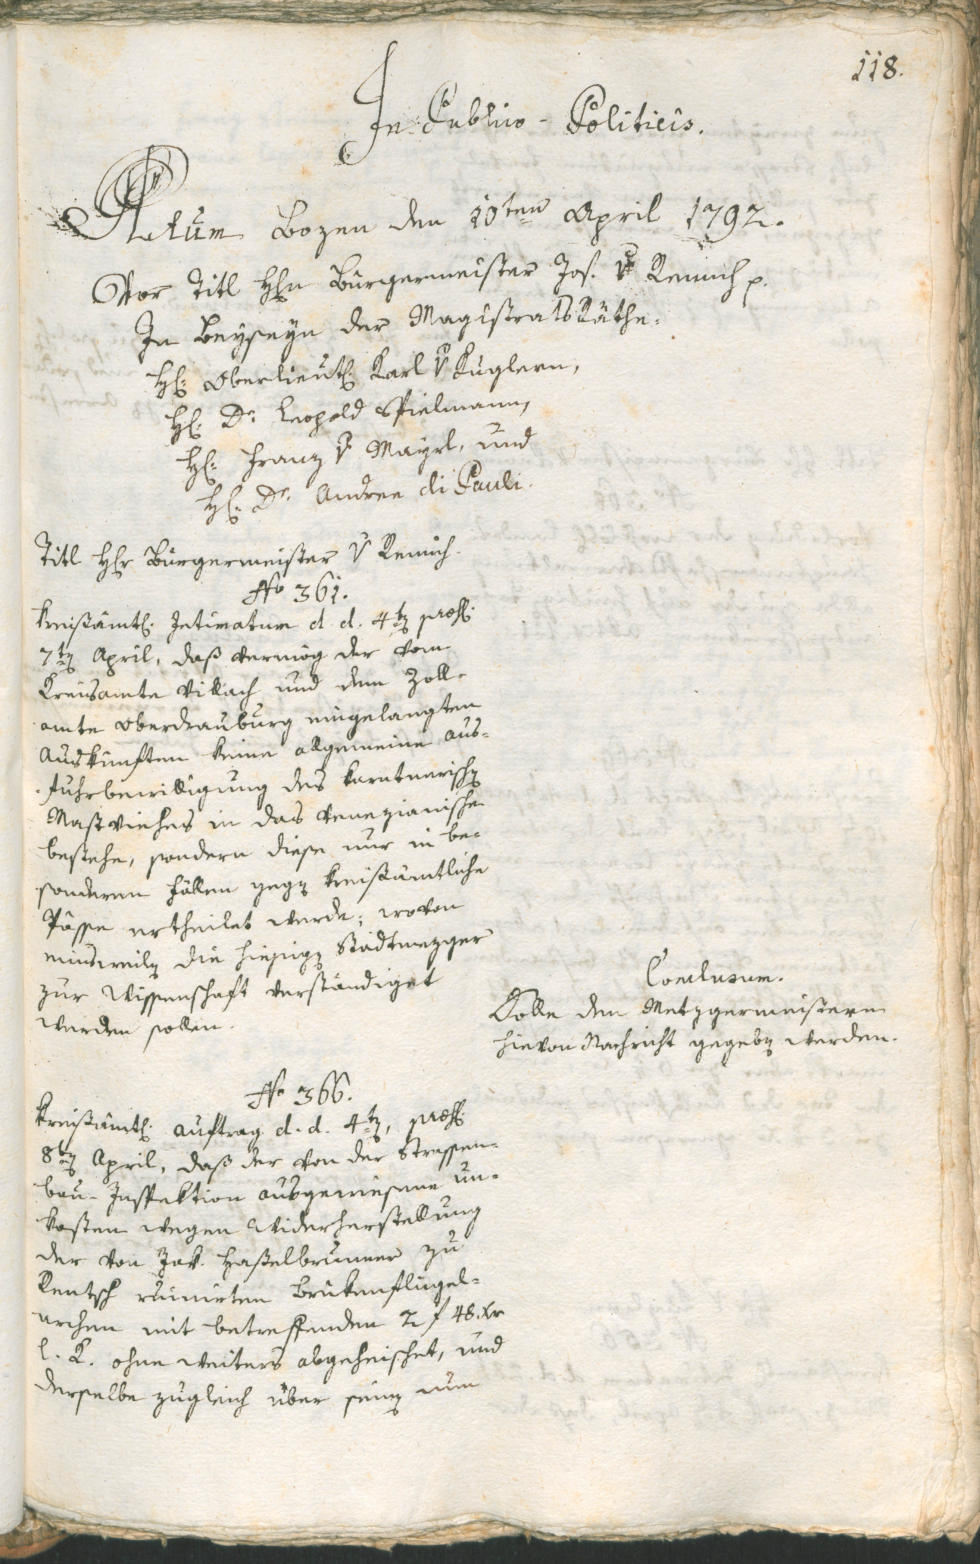 118.
In Publico-Politicis.
Actum Bozen den 10ten April 1792.
Vor Titl Hhn Bürgermeister Jos. v Remich p.
In Beyseyn der Magistrats Räthe.
H: Oberlieut: Karl v Kuglern,
H: Dr. Leopold Spielmann,
H: Franz v Mayrl, und
H: Dr. Andree di Pauli.
Titl Hhr Bürgermeister v Remich.
No 361.
Kreisämtl: Intimatum d. d. 4t præs:
7t April, daß vermög der vom
Kreisamte Villach und dem Zoll-
amte Oberdrauburg eingelangten
Auskünften keine allgemeine aus-
fuhrbewilligung des karntnerisch
Mastviehes in das Venezianische
bestehe, sondern diese nur in be-
sonderen Fällen geg kreisämtliche
Pässe ertheilet werde; wovon
einsweil die hiesig Stadtmezger
zur Wissenschaft verständiget
werden sollen.
Conclusum.
Solle den Metzgermeistern
hievon Nachricht gegeb werden.
No 366.
Kreisämtl: auftrag d. d. 4t, præs:
8t April, daß der von der Strassen-
bau-Inspektion ausgewiesene un-
kosten wegen Widerherstellung
der von Jak. Haselbrunner zu
Rentsch ruinirten Brükenflügel-
archen mit betreffenden 2 f 48 xr
l. K. ohne weiters abgeheischet, und
derselbe zugleich über sein nun